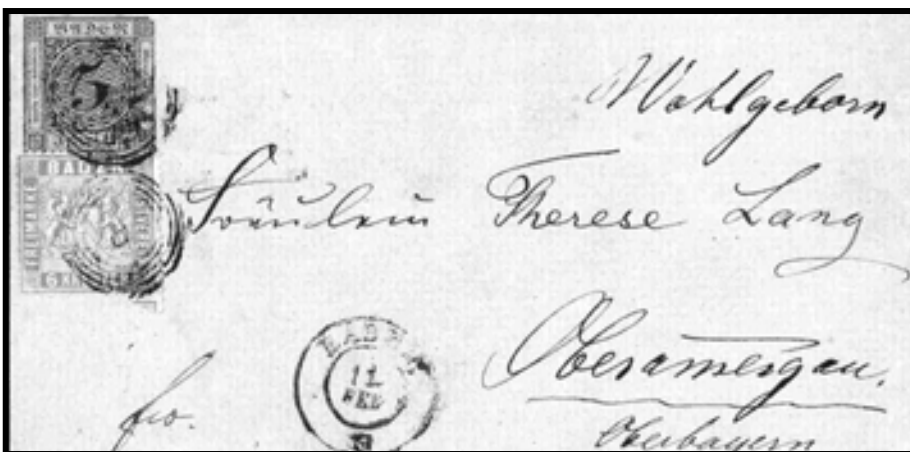 BADEN
3
BADEN
Wohlgeborn
Fräulein Therese Lang
Oberamergau.
Oberbayern
fro.
11
FEB